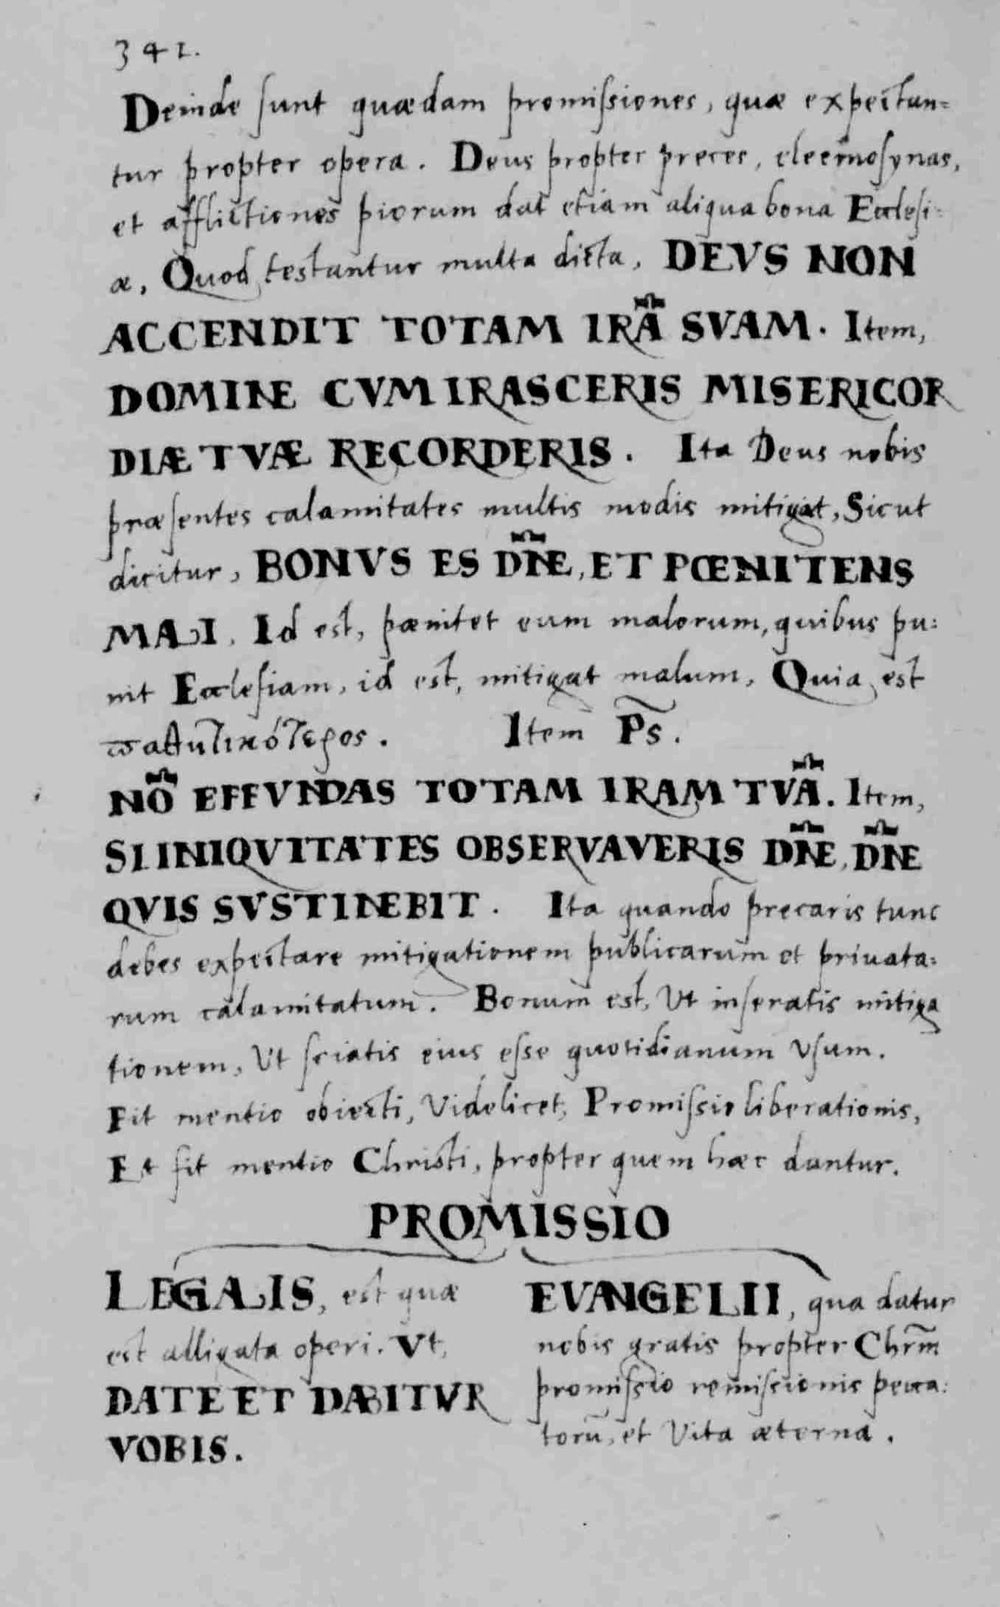 341.
Deinde sunt quædam promissiones, quæ expectan=
tur propter opera. Deus propter preces, eleemosynas,
et afflictiones piorum dat etiam aliqua bona Ecclesi=
æ, Quod testantur multa dicta, DEVS NON
ACCENDIT TOTAM IRÃ SVAM. Item,
DOMINE CVM IRASCERIS MISERICOR
DIÆ TVÆ RECORDERIS. Ita Deus nobis
præsentes calamitates multis modis mitigat, Sicut
dicitur, BONVS ES DÑE, ET PŒNITENS
MALI. Id est, pœnitet eum malorum, quibus pu:
nit Ecclesiam, id est, mitigat malum, Quia est
παθητικότερος. Item P̃s.
NÕ EFFVNDAS TOTAM IRAM TVÃ. Item,
SI INIQVITATES OBSERVAVERIS DÑE, DÑE
QVIS SVSTINEBIT. Ita quando precaris tunc
debes expectare mitigationem publicarum et privata:
rum calamitatum. Bonum est, Vt inseratis mitiga
tionem, Vt sciatis eius esse quotidianum Vsum.
Fit mentio obiecti, Videlicet, Promissio liberationis,
Et fit mentio Christi, propter quem hæc dantur.
PROMISSIO
LEGALIS, est quæ
est alligata operi. Vt,
DATE ET DABITVR
VOBIS.
EVANGELII, qua datur
nobis gratis propter Chrm̃
promissio remissionis pecca:
torũ, et Vita æterna.